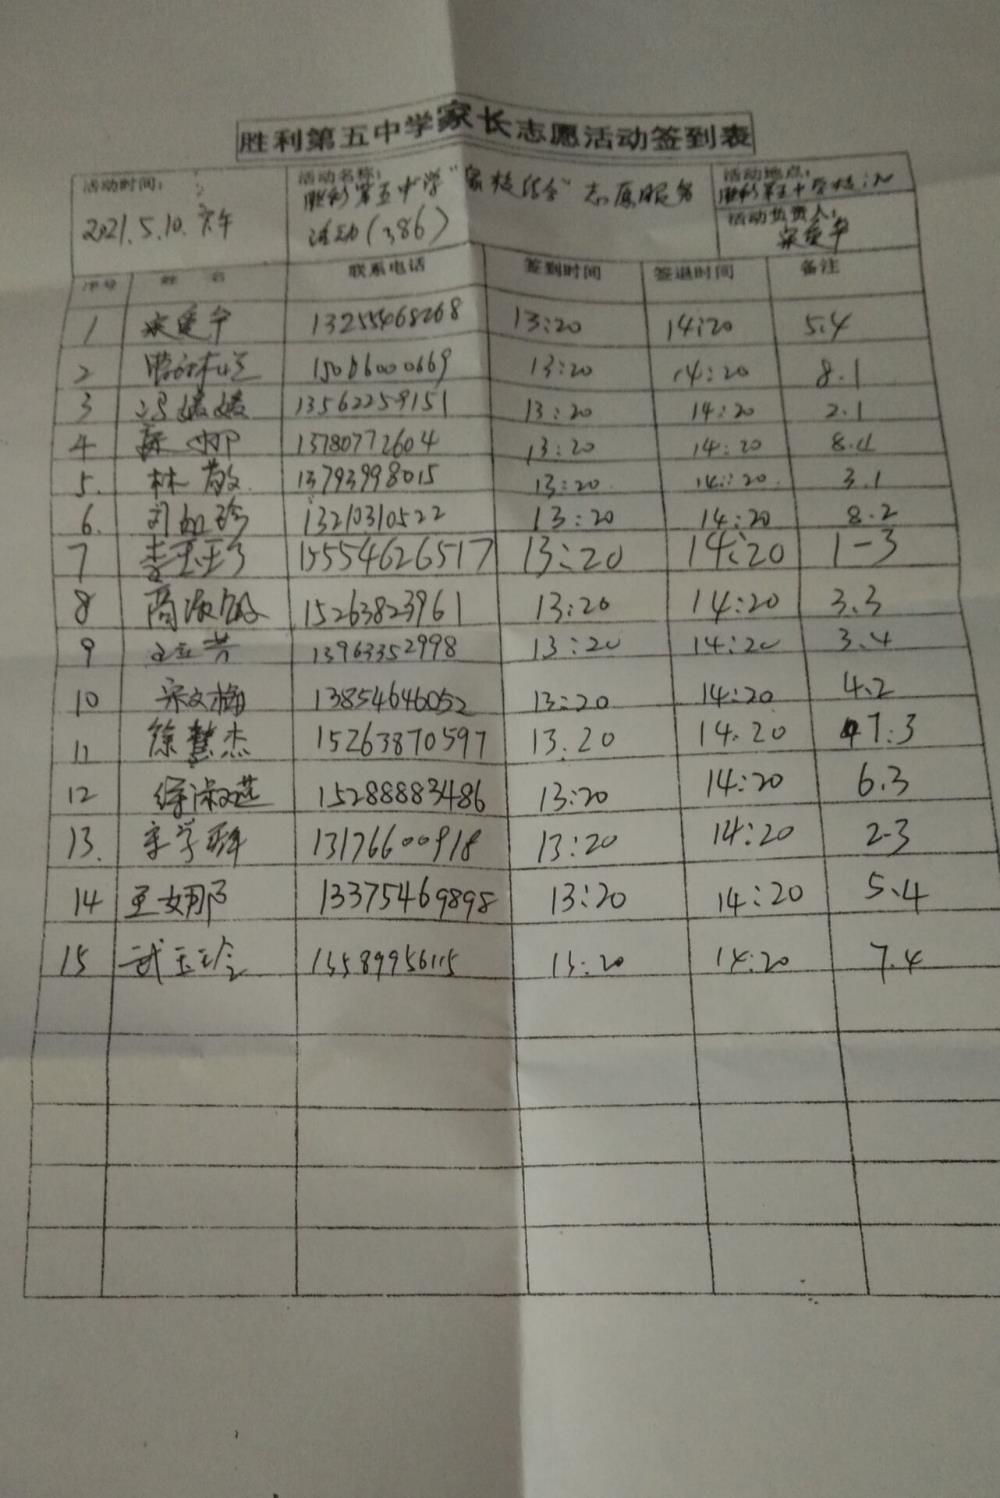 胜利第五中学家长志愿活动签到表
活动时间: 2021.5.10.下午
活动名称: 胜利第五中学"家校结合"志愿服务
活动(386)
活动地点:
胜利第五中学
活动负责人:
序号 姓名 联系电话 签到时间 签退时间 备注
1 13255468268 13:20 14:20 5.4
2 15066000669 13:20 14:20 8.1
3 冯媛媛 13562259151 13:20 14:20 2.1
4 娜 13780772604 13:20 14:20 8.4
5. 林敬 13793998015 13:20 14:20 3.1
6. 13210310522 13:20 14:20 8.2
7 15554626517 13:20 14:20 1-3
8 商淑 15263823961 13:20 14:20 3.3
9 芳 13963352998 13:20 14:20 3.4
10 宋文梅 13854646052 13:20 14:20 4.2
11 徐慧杰 15263870597 13.20 14.20 7.3
12 徐淑燕 15288883486 13:20 14:20 6.3
13. 李学 13176600918 13:20 14:20 2-3
14 王娜 13375469898 13:20 14:20 5.4
15 武玉玲 13589956115 13:20 14:20 7.4